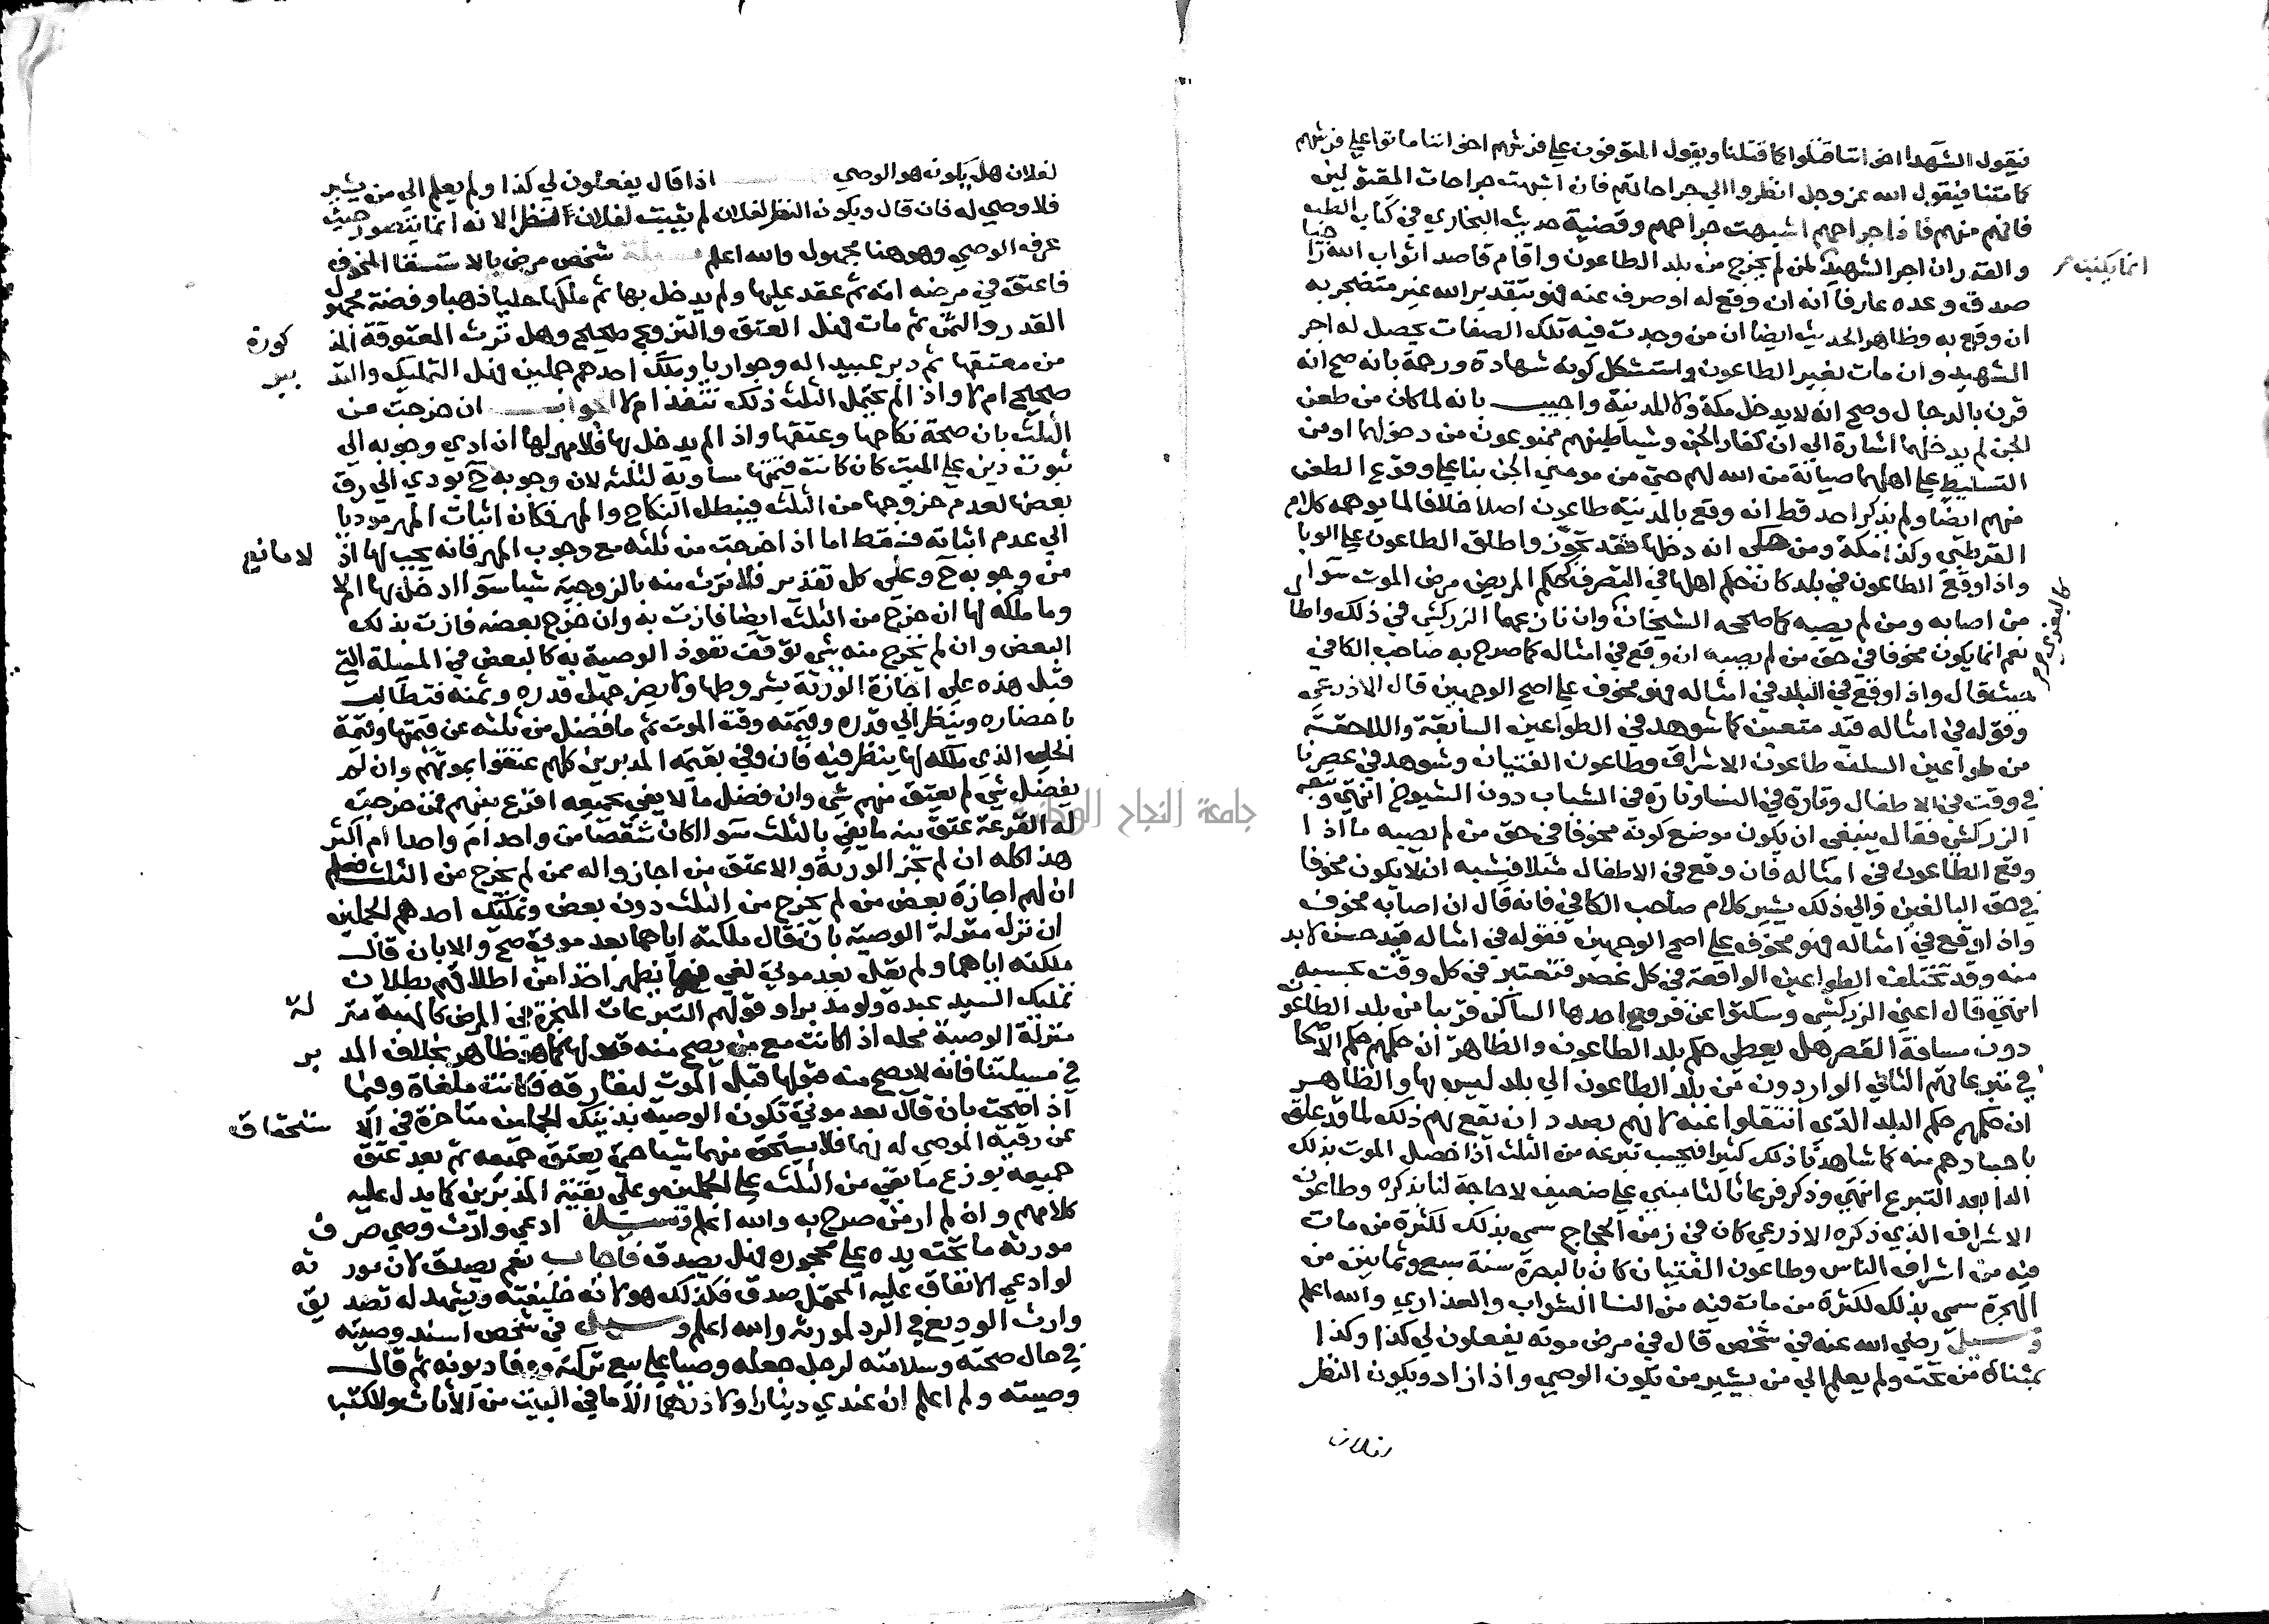 فيقول الشهدا اخواننا قتلوا كما قتلنا ويقول المتوفون على فرشهم اخواننا ماتوا على فرشهم
كما متنا فيقول الله عز وجل انظروا الى جراحاتهم فان اشبهت جراحات المقتولين
فانهم منهم فاذا جراحهم اشبهت جراحهم وقضية حديث البخاري في كتاب الطب
والقدر ان اجر الشهيد لمن لم يخرج من بلد الطاعون واقام قاصدا ثواب الله راجيا
انما يكتب
صدق وعده عارفا انه ان وقع له او صرف عنه فهو بتقدير الله غير متضجر به
ان وقع به وظاهر الحديث ايضا ان من وجدت فيه تلك الصفات يحصل له اجر
الشهيد وان مات بغير الطاعون واستشكل كونه شهادة ورحمة بانه صح انه
قرن بالدجال وصح انه لا يدخل مكة ولا المدينة واجيب بانه لما كان من طعن
الجن لم يدخلها اشارة الى ان كفار الجن وشياطينهم ممنوعون من دخولها او من
التسليط على اهلها صيانة من الله لهم حتى من مومني الجن بنا على وقوع الطعن
منهم ايضا ولم يذكر احد قط انه وقع بالمدينة طاعون اصلا خلافا لما يوهمه كلام
القرطبي وكذا مكة ومن حكى انه دخلها فقد تجوز واطلق الطاعون على الوبا
واذا وقع الطاعون في بلد كان حكم اهلها في التصرف كحكم المريض مرض الموت سوا
من اصابه ومن لم يصبه كما صححه الشيخان وان نازعهما الزركشي في ذلك واطال
نعم انما يكون مخوفا في حق من لم يصبه ان وقع في امثاله كما صرح به صاحب الكافي
حيث قال واذا وقع في البلد في امثاله فهو مخوف على اصح الوجهين قال الاذرعي
وقوله في امثاله قيد متعين كما شوهد في الطواعين السابقة واللاحقة
من طواعين السلف طاعون الاشراف وطاعون الفتيان وشوهد في عصرنا
في وقت في الاطفال وتارة في النسا وتارة في الشباب دون الشيوخ انتهى وتبعه
الزركشي فقال ينبغي ان يكون موضع كونه مخوفا في حق من لم يصبه ما اذا
وقع الطاعون في امثاله فان وقع في الاطفال مثلا فيشبه ان لا يكون مخوفا
في حق البالغين والى ذلك يشير كلام صاحب الكافي فانه قال ان اصابه مخوف
واذا وقع في امثاله فهو مخوف على اصح الوجهين فقوله في امثاله قيد حسن لا بد
منه وقد تختلف الطواعين الواقعة في كل عصر فتعتبر في كل وقت بحسبه
انتهى قال اعني الزركشي وسكتوا عن فروع احدها الساكن قريبا من بلد الطاعون
دون مسافة القصر هل يعطى حكم بلد الطاعون والظاهر ان حكمهم حكم الاصحا
في تبرعاتهم الثاني الواردون من بلد الطاعون الى بلد ليس بها والظاهر
ان حكمهم حكم البلد الذي انتقلوا عنه لانهم بصدد ان يقع لهم ذلك لما قد علق
باجسادهم منه كما شاهدنا ذلك كثيرا فيحسب تبرعه من الثلث اذا حصل الموت بذلك
الدا بعد التبرع انتهى وذكر فرعا ثالثا مبني على ضعيف لا حاجة لنا بذكره وطاعون
الاشراف الذي ذكره الاذرعي كان في زمن الحجاج سمي بذلك لكثرة من مات
فيه من اشراف الناس وطاعون الفتيان كان بالبصرة سنة سبع وثمانين من
الهجرة سمي بذلك لكثرة من مات فيه من النسا الشواب والعذارى والله اعلم
وسيل رضي الله عنه في شخص قال في مرض موته يفعلون لي كذا وكذا
بمثناة من تحت ولم يعلم الى من يشير من يكون الوصي واذا زاد ويكون النظر
لفلان
لفلان هل يكون هو الوصي اذا قال يفعلون لي كذا ولم يعلم الى من يشير
فلا وصي له فان قال ويكون النظر لفلان لم يثبت لفلان النظر لانه انما يتصور حيث
عرفه الوصي وهو هنا مجهول والله اعلم شخص مرض بالاستسقا المخوف
فاعتق في مرضه امة ثم عقد عليها ولم يدخل بها ثم ملكها حليا ذهبا وفضة مجهول
القدر والثمن ثم مات فهل العتق والتزويج صحيح وهل ترث المعتوقة المذكورة
من معتقها ثم دبر عبيدا له وجواريا وملك احدهم جملين فهل التمليك والتدبير
صحيح ام لا واذا لم يحتمل الثلث ذلك تنفذ ام لا الجواب ان خرجت من
الثلث بان صحة نكاحها وعتقها واذا لم يدخل بها فلا مهر لها ان ادى وجوبه الى
ثبوت دين على الميت كان كانت قيمتها مساوية لثلثه لان وجوبه ح يودي الى رق
بعضها لعدم خروجها من الثلث فيبطل النكاح والمهر فكان اثبات المهر موديا
الى عدم اثباته فسقط اما اذا خرجت من ثلثه مع وجوب المهر فانه يجب لها اذ لا مانع
من وجوبه ح وعلى كل تقدير فلا ترث منه بالزوجية شيا سوا ادخل بها ام لا
وما ملكه لها ان خرج من الثلث ايضا فازت به وان خرج بعضه فازت بذلك
البعض وان لم يخرج منه شي توقفت نفوذ الوصية به كالبعض في المسيلة التي
قبل هذه على اجازة الورثة بشروطها ولا يضر جهل قدره وثمنه فتطالب
باحضاره وينظر الى قدره وقيمته وقت الموت ثم ما فضل من ثلثه عن قيمتها وقيمة
الحلى الذي ملكه لها ينظر فيه فان وفى بقيمة المدبرين كلهم عتقوا بموتهم وان لم
يفضل شي لم يعتق منهم شي وان فضل ما لا يفي بجميعه اقرع بينهم فمن خرجت
له القرعة عتق منه ما يفي بالثلث سوا كان شقصا من واحد ام واحدا ام اكثر
هذا كله ان لم يجز الورثة والا عتق من اجازوا له ممن لم يخرج من الثلث فعلم
ان لهم اجازة بعض من لم يخرج من الثلث دون بعض وتمليك احدهم الجملين
ان نزل منزلة الوصية بان قال ملكته اياهما بعد موتي صح والا بان قال
ملكته اياهما ولم يقل بعد موتي لغى فيما يظهر اخذا من اطلاقهم بطلان
تمليك السيد عبده ولو مدبرا وقولهم التبرعات المنجزة في المرض كالهبة منزلة
منزلة الوصية محله اذا كانت مع من يصح منه قبولها كما هو ظاهر بخلاف المدبر
في مسيلتنا فانه لا يصح منه قبولها قبل الموت لبقا رقه فكانت ملغاة وفيما
اذا صحت بان قال بعد موتي تكون الوصية بذينك الجملين متاخرة في الاستحقاق
عن رقبة الموصى له بهما فلا يستحق منهما شيا حتى يعتق جميعه ثم بعد عتق
جميعه يوزع ما بقي من الثلث على الجملين وعلى بقية المدبرين كما يدل عليه
كلامهم وان لم ار من صرح به والله اعلم وسيل ادعى وارث وصي صرف
مورثه ما تحت يده على محجوره فهل يصدق فاجاب نعم يصدق لان مورثه
لو ادعى الانفاق عليه المحتمل صدق فكذلك هو لانه خليفته ويشهد له تصديق
وارث الوديع في الرد لمورثه والله اعلم وسيل في شخص اسند وصيته
في حال صحته وسلامته لرجل جعله وصيا على بيع تركته ووفا ديونه ثم قال
وصيته ولم اعلم ان عندي دينارا ولا درهما الا ما في البيت من الاثاث